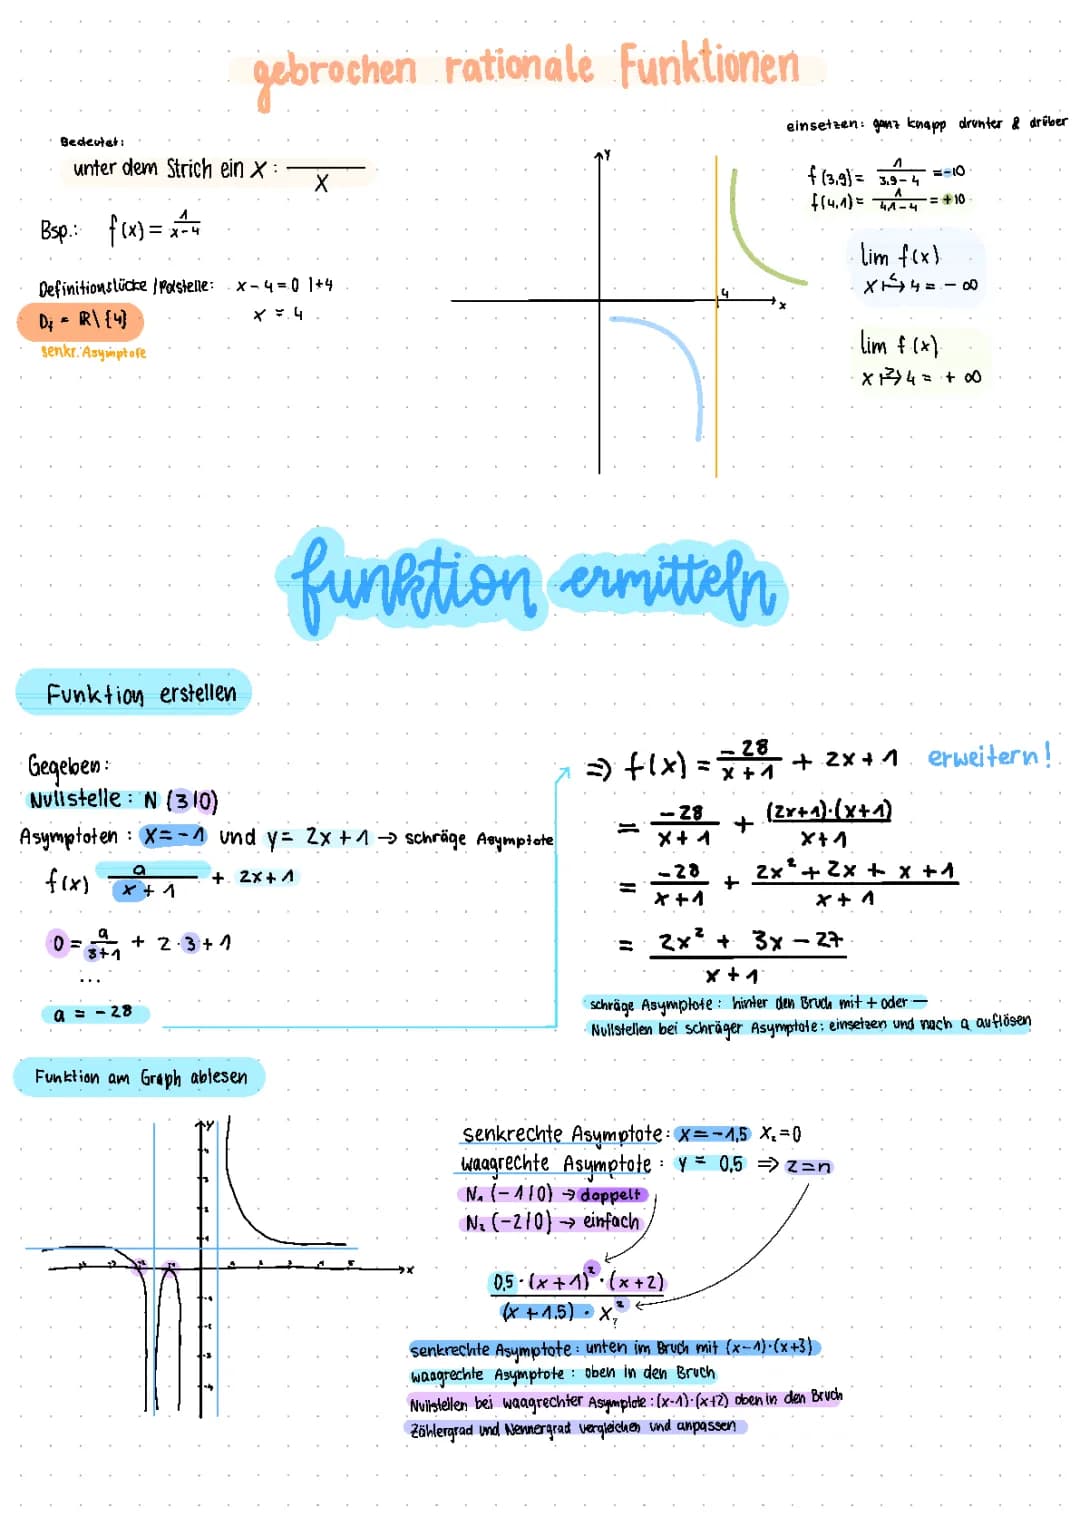 gebrochen rationale Funktionen
Bedeutet:
unter dem Strich ein x : ___/x
Bsp.: f(x) = 1/(x-4)
Definitionslücke / Polstelle: x - 4 = 0 |+4
x = 4
D_f = ℝ\{4}
senkr. Asymptote
einsetzen: ganz knapp drunter & drüber
f(3,9) = 1/(3,9-4) = -10
f(4,1) = 1/(4,1-4) = +10
lim f(x)
x <→ 4 = - ∞
lim f(x)
x >→ 4 = + ∞
y
4
x
funktion ermitteln
Funktion erstellen
Gegeben:
Nullstelle: N (3|0)
Asymptoten : x = -1 und y = 2x + 1 → schräge Asymptote
f(x) a/(x+1) + 2x + 1
0 = a/(3+1) + 2·3 + 1
...
a = - 28
⇒ f(x) = -28/(x+1) + 2x + 1 erweitern!
= -28/(x+1) + (2x+1)·(x+1)/(x+1)
= -28/(x+1) + (2x² + 2x + x + 1)/(x+1)
= (2x² + 3x - 27)/(x+1)
schräge Asymptote : hinter den Bruch mit + oder —
Nullstellen bei schräger Asymptote: einsetzen und nach a auflösen
Funktion am Graph ablesen
y
x
senkrechte Asymptote: x = -1,5 x₂ = 0
waagrechte Asymptote : y = 0,5 ⇒ z = n
N₁ (-1|0) → doppelt
N₂ (-2|0) → einfach
0,5 · (x+1)² · (x+2)
(x + 1,5) · x²
senkrechte Asymptote : unten im Bruch mit (x-1)·(x+3)
waagrechte Asymptote : oben in den Bruch
Nullstellen bei waagrechter Asymptote : (x-1)·(x+2) oben in den Bruch
Zählergrad und Nennergrad vergleichen und anpassen